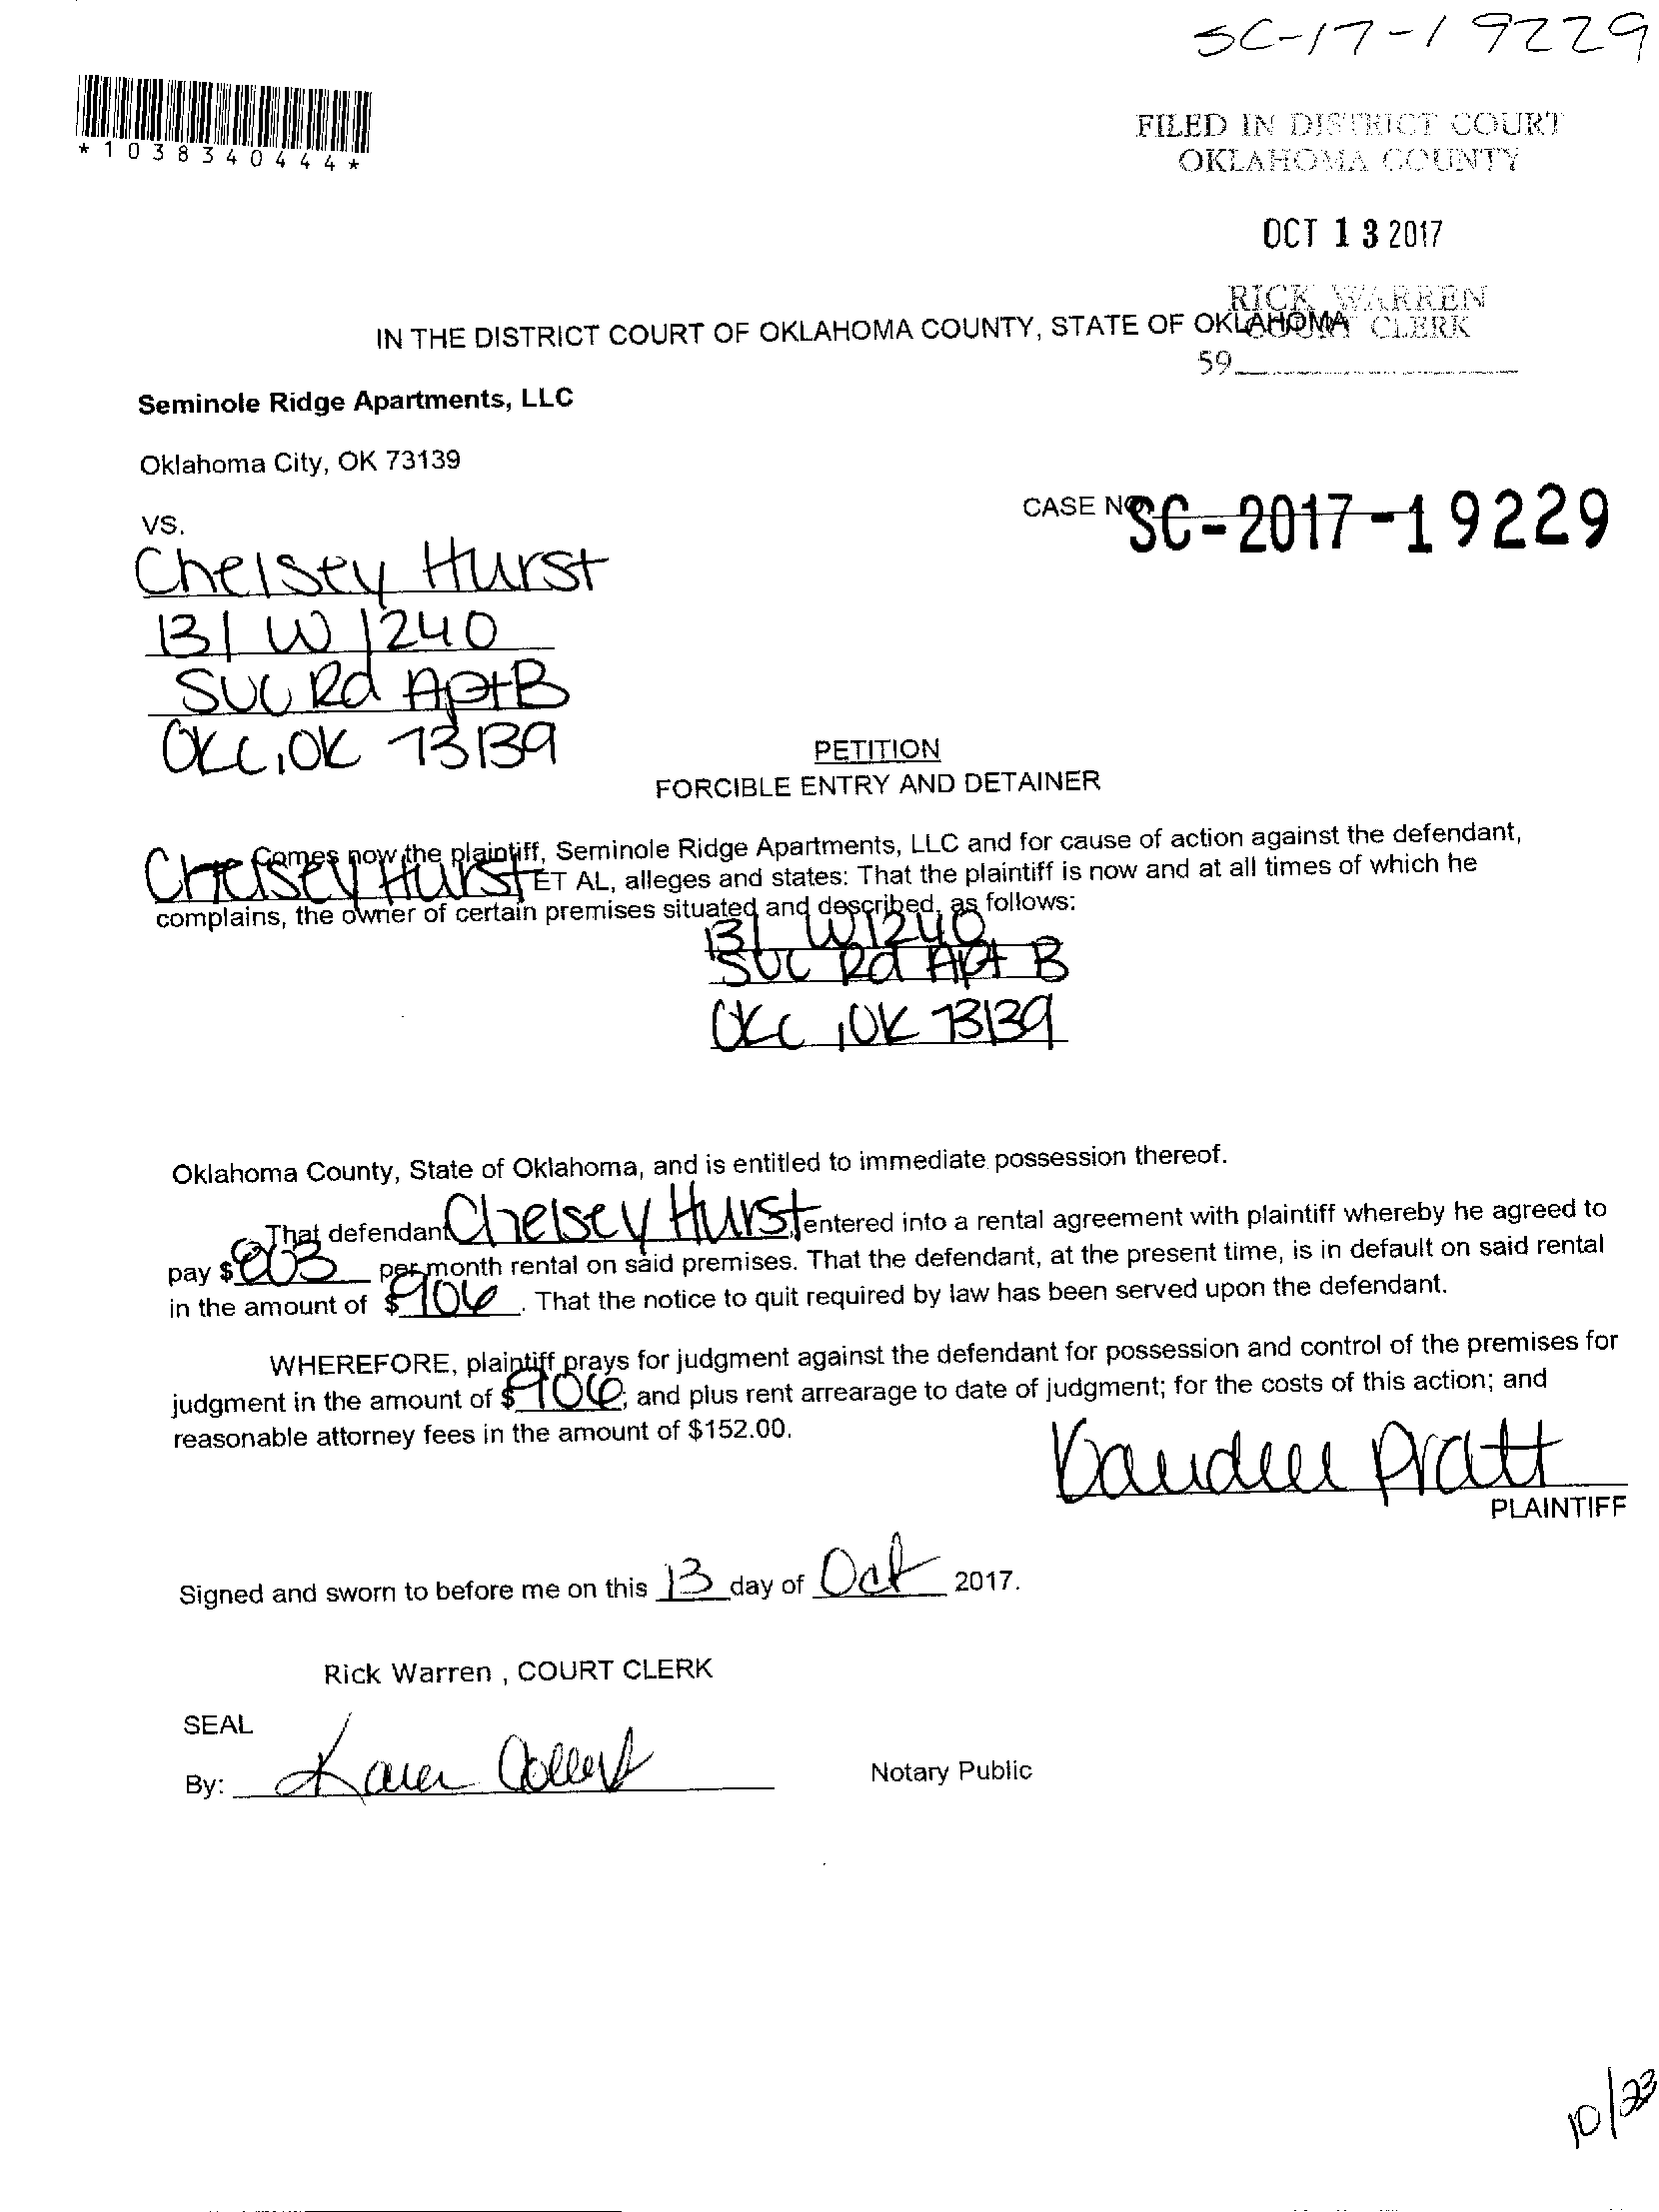 SC-17-19229
*1038340444*
FILED IN DISTRICT COURT
OKLAHOMA COUNTY
OCT 13 2017
RICK WARREN
COURT CLERK
59
IN THE DISTRICT COURT OF OKLAHOMA COUNTY, STATE OF OKLAHOMA
Seminole Ridge Apartments, LLC
Oklahoma City, OK 73139
VS.
CASE NO. SC-2017-19229
Chelsey Hurst
131 W I240
SVC Rd Apt B
OKC, OK 73139
PETITION
FORCIBLE ENTRY AND DETAINER
Comes now the plaintiff, Seminole Ridge Apartments, LLC and for cause of action against the defendant,
Chelsey Hurst ET AL, alleges and states: That the plaintiff is now and at all times of which he
complains, the owner of certain premises situated and described, as follows:
131 W I240
SVC Rd Apt B
OKC, OK 73139
Oklahoma County, State of Oklahoma, and is entitled to immediate possession thereof.
That defendant Chelsey Hurst, entered into a rental agreement with plaintiff whereby he agreed to
pay $ per month rental on said premises. That the defendant, at the present time, is in default on said rental
in the amount of $906. That the notice to quit required by law has been served upon the defendant.
WHEREFORE, plaintiff prays for judgment against the defendant for possession and control of the premises for
judgment in the amount of $906; and plus rent arrearage to date of judgment; for the costs of this action; and
reasonable attorney fees in the amount of $152.00.
Pratt
PLAINTIFF
Signed and sworn to before me on this 13 day of Oct 2017.
Rick Warren , COURT CLERK
SEAL
By: Karen
Notary Public
10/23